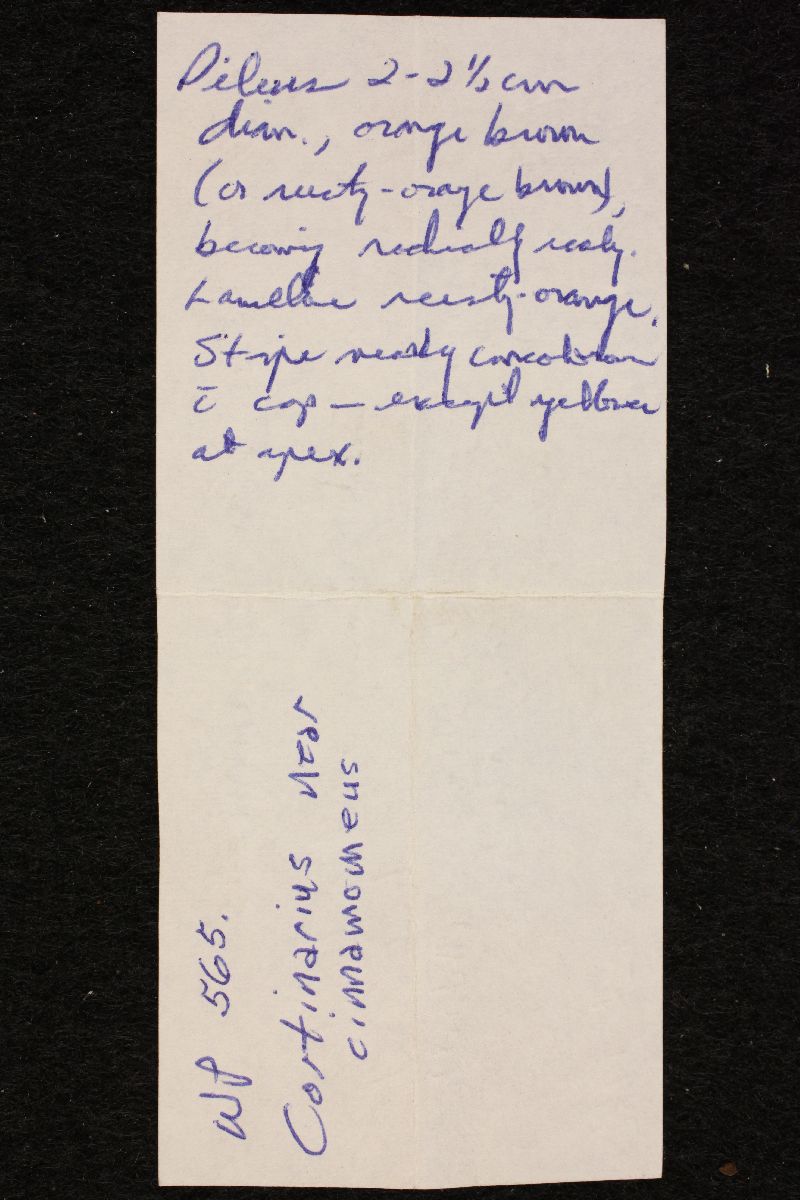 Pileus 2-2½ cm
diam., orange brown
(or rusty-orange brown),
becoming radially scaly.
Lamellae rusty-orange.
Stipe nearly concolorous
c̄ cap — except yellow
at apex.
WP 565.
Cortinarius near
cinnamomeus